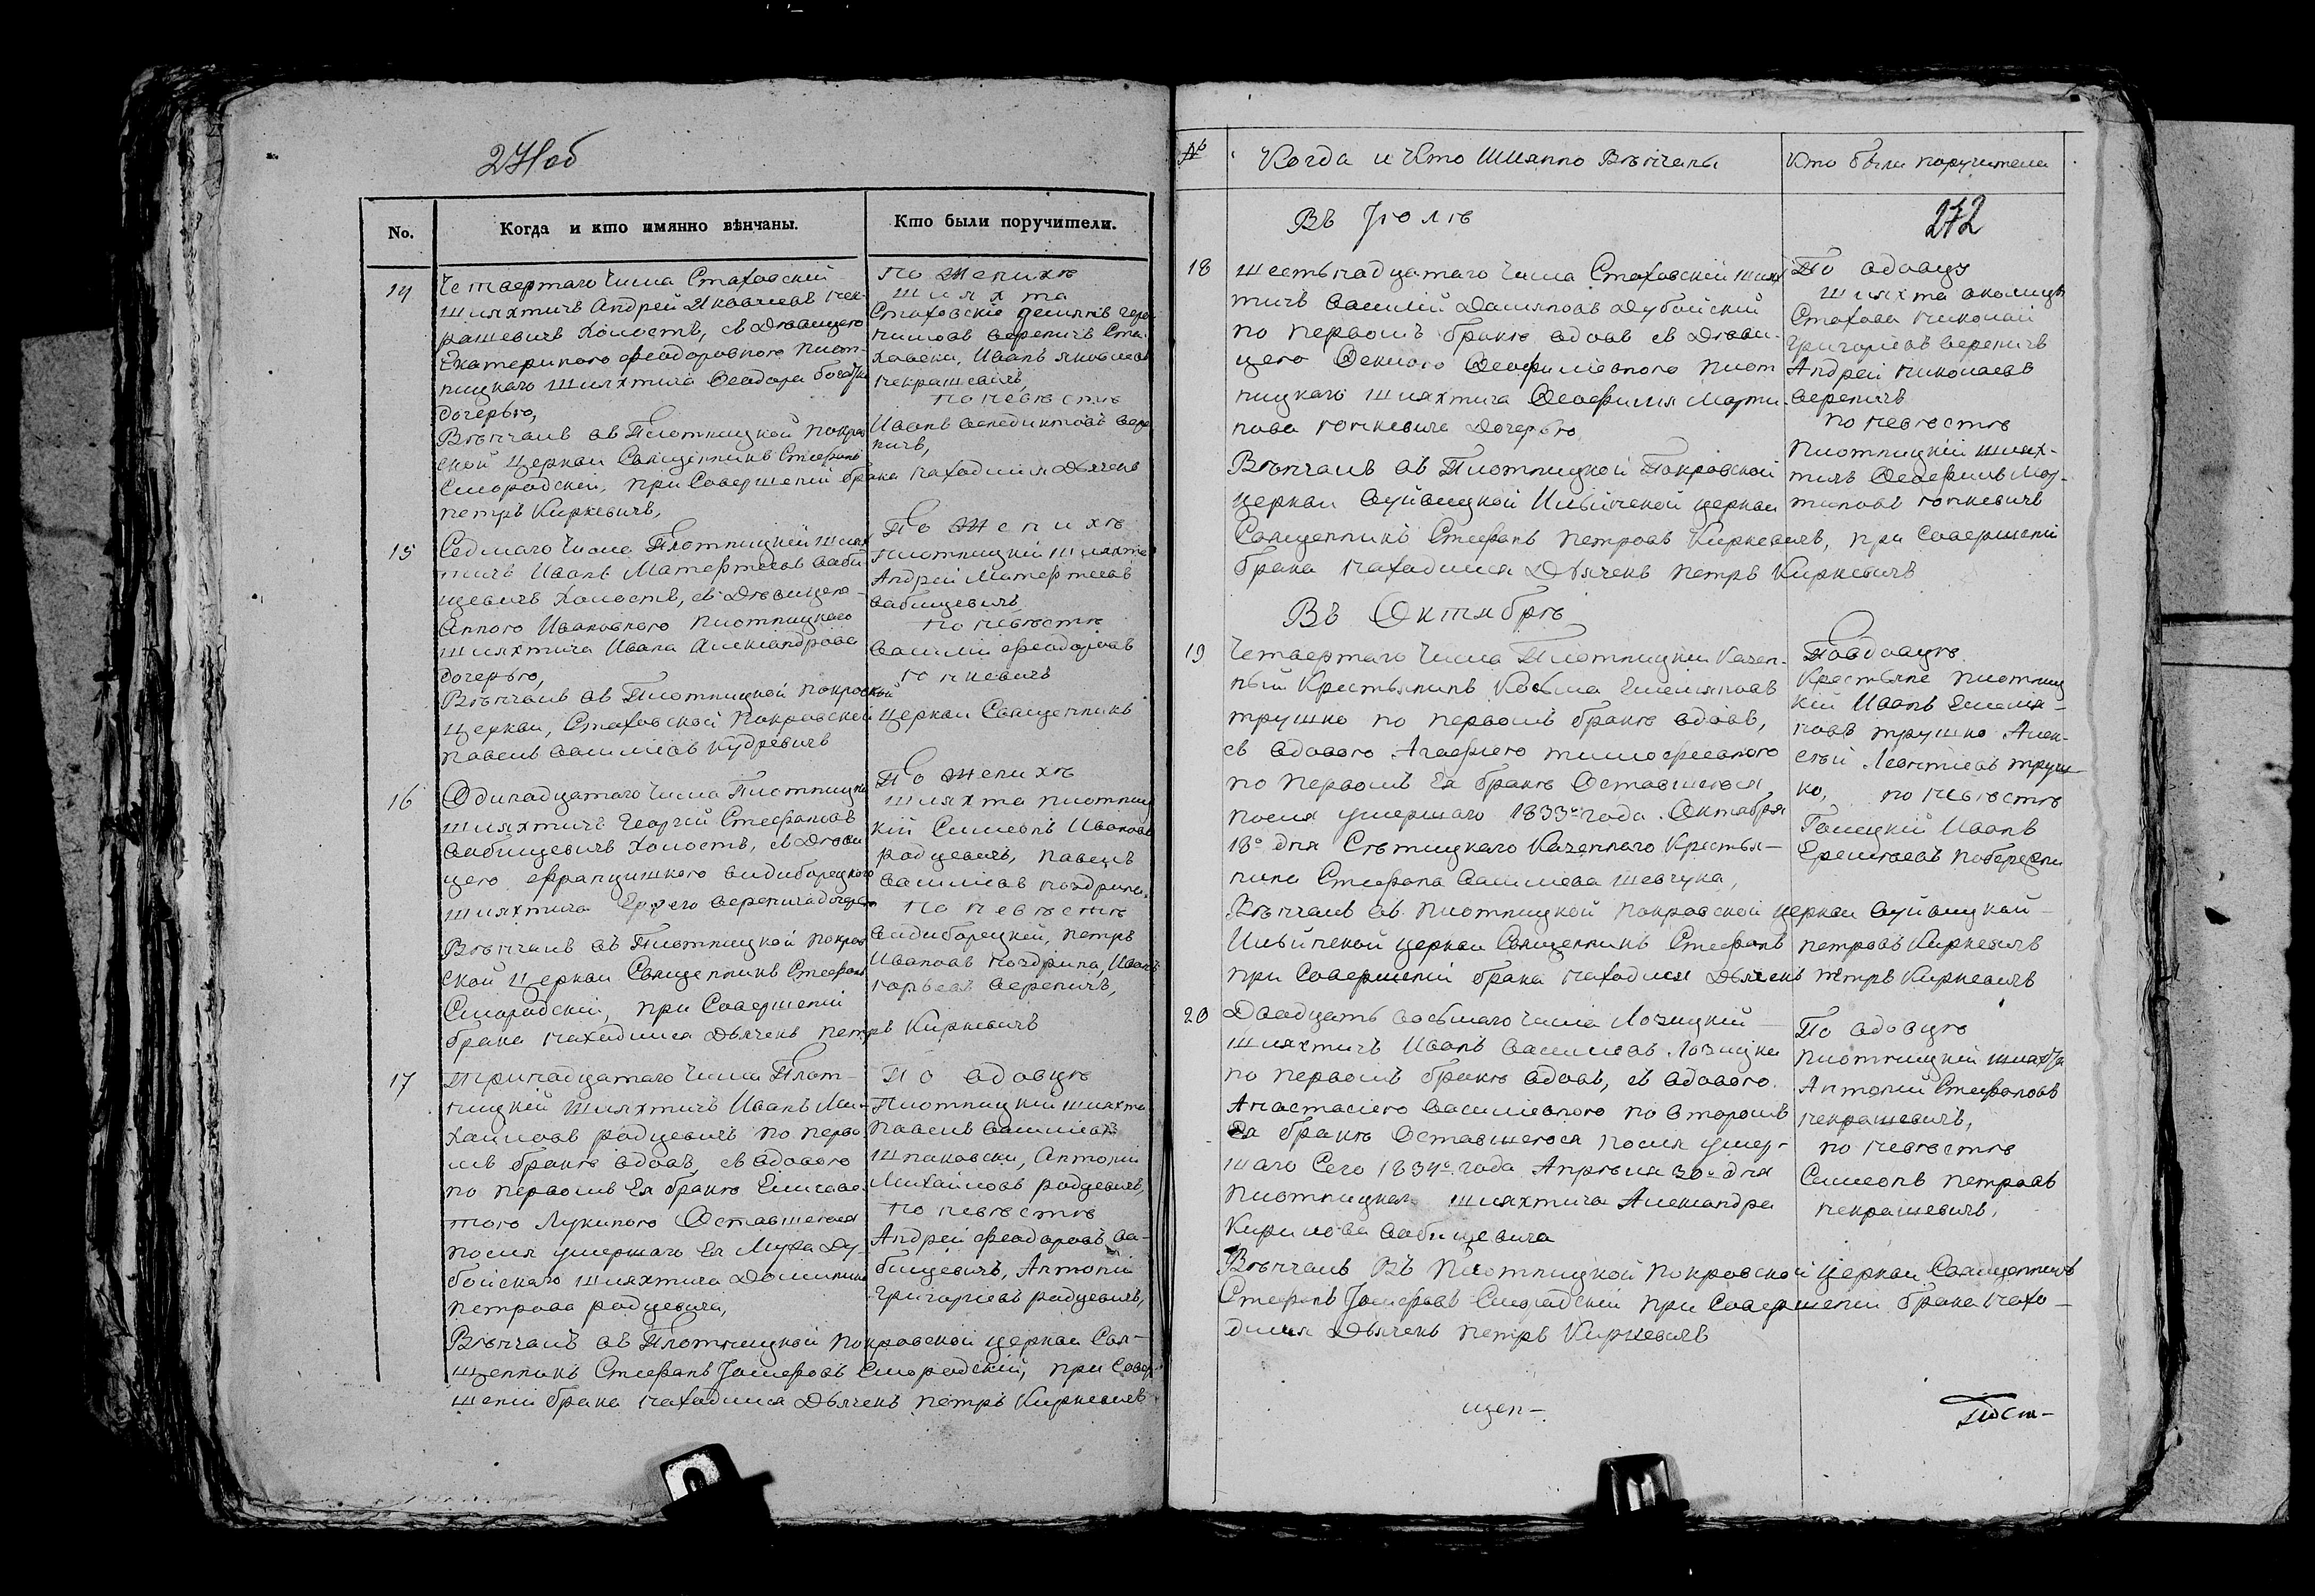 271 об
No.
Когда и кто имянно вѣнчаны.
Кто были поручители.
14
Четвертаго числа Стаховскій
шляхтичъ Андрей Яковлевъ Нек-
рашевичъ холостъ, съ Девицею
Екатериною Феодоровною Плот-
ницкаго шляхтича Феодора
дочерью,
Вѣнчалъ въ Плотницкой Покров
ской Церкви Священникъ Стефанъ
Смородскій, при Совершеніи брака находился Дьячекъ
Петръ Киркевичъ,
По Женихѣ
шляхта
Стаховскіе
Вереничъ Ста-
ховски, Иванъ Яковлевъ
Некрашевичъ,
по невѣстѣ
Иванъ Венедиктовъ Вере
ничъ,
15
Седмаго числа Плотницкій шлях
тичъ Иванъ Матерѳеевъ Баби-
щевичъ холостъ, съ Девицею
Анною Ивановною Плотницкаго
шляхтича Ивана Александрова
дочерью,
Вѣнчалъ въ Плотницкой Покровской
Церкви, Стаховской Покровской Церкви Священникъ
Павелъ Васильевъ Кудревичъ
По Женихѣ
плотницкій шляхта
Андрей Матерѳеевъ
Бабищевичъ
по невѣстѣ
Василій Феодоровъ
Гоцкевичъ
16
Одинадцатаго числа Плотницкій
шляхтичъ Георгій Стефановъ
Бабищевичъ холостъ, съ Деви
цею Францишкою Видиборецкаго
шляхтича Веренича дочерью
Вѣнчалъ въ Плотницкой Покров
ской Церкви Священникъ Стефанъ
Смородскій, при Совершеніи
брака находился Дьячекъ Петръ Киркевичъ
По Женихѣ
шляхта плотниц
кій Симеонъ Ивановъ
Родцевичъ, Павелъ
Васильевъ Ноздрина,
по невѣстѣ
Видиборецкій, Петръ
Ивановъ Ноздрина, Иванъ
Вереничъ,
17
Тринадцатаго числа Плот-
ницкій шляхтичъ Иванъ Ми-
хайловъ Родцевичъ по перво
мъ бракѣ вдовъ, съ вдовою
по первомъ Ея бракѣ Елисаве-
тою Лукиною Оставшеюся
после умершаго Ея Мужа Ду-
бойскаго шляхтича Доминика
Петрова Родцевича,
Вѣнчалъ въ Плотницкой Покровской церкви Свя-
щенникъ Стефанъ Іосифовъ Смородскій, при Совер-
шеніи брака находился Дьячекъ Петръ Киркевичъ
По вдовцѣ
Плотницкій шляхта
Павелъ Васильевъ
Шпаковски, Антоній
Михайловъ Родцевичъ,
по невѣстѣ
Андрей Феодоровъ Ба-
бищевичъ, Антоній
Григорьевъ Родцевичъ,
№
Когда и кто имянно Вѣнчаны
Кто были поручители
272
Въ Іюлѣ
18
Шестьнадцатаго числа Стаховскій шлях
тичъ Василій Дамяновъ Дубойскій
по первомъ бракѣ вдовъ съ Деви-
цею Феклою Феофиловною Плот
ницкаго шляхтича Феофила Марти-
нова Гоцкевича Дочерью
Вѣнчалъ въ Плотницкой Покровской
церкви Вуйвицкой Ильинской церкви
Священникъ Стефанъ Петровъ Киркевичъ, при Совершеніи
брака находился Дьячекъ Петръ Киркевичъ
По вдовцу
шляхта околицы
Стахова Николай
Григорьевъ Вереничъ
Андрей Николаевъ
Вереничъ
по невѣстѣ
Плотницкій шлях-
тичъ Феофилъ Мар-
тиновъ Гоцкевичъ
Въ Октябрѣ
19
Четвертаго числа Плотницкій Казен-
ный Крестьянинъ Козьма Емельяновъ
Трушко по первомъ бракѣ вдовъ,
съ вдовою Агафіею Тимофеевною
по первомъ Ея бракѣ Оставшеюся
после умершаго 1833го года Октября
18о дня Сѣтицкаго Казеннаго Крестья-
нина Стефана Васильева Шевчука,
Вѣнчалъ въ Плотницкой Покровской церкви Вуйвицкой
Ильинской церкви Священникъ Стефанъ Петровъ Киркевичъ
при Совершеніи брака находился Дьячекъ Петръ Киркевичъ
По вдовцѣ
Крестьяне Плотниц
кій Иванъ Емелья-
новъ Трушко Алек-
сѣй Леонтіевъ Труш-
ко, по невѣстѣ
Иванъ
20
Двадцать восьмаго числа Лозицкій
шляхтичъ Иванъ Васильевъ Лозицки
по первомъ бракѣ вдовъ, съ вдовою
Анастасіею Васильевною по второмъ
Ея бракѣ Оставшеюся после умер-
шаго Сего 1834го года Апрѣля 30о дня
Плотницкаго шляхтича Александра
Кирилова Бабищевича
Вѣнчалъ Въ Плотницкой Покровской Церкви Священникъ
Стефанъ Іосифовъ Смородскій при Совершеніи брака нахо-
дился Дьячекъ Петръ Киркевичъ
По вдовцѣ
Плотницкій шляхта
Антоній Стефановъ
Некрашевичъ,
по невѣстѣ
Симеонъ Петровъ
Некрашевичъ,
щен-